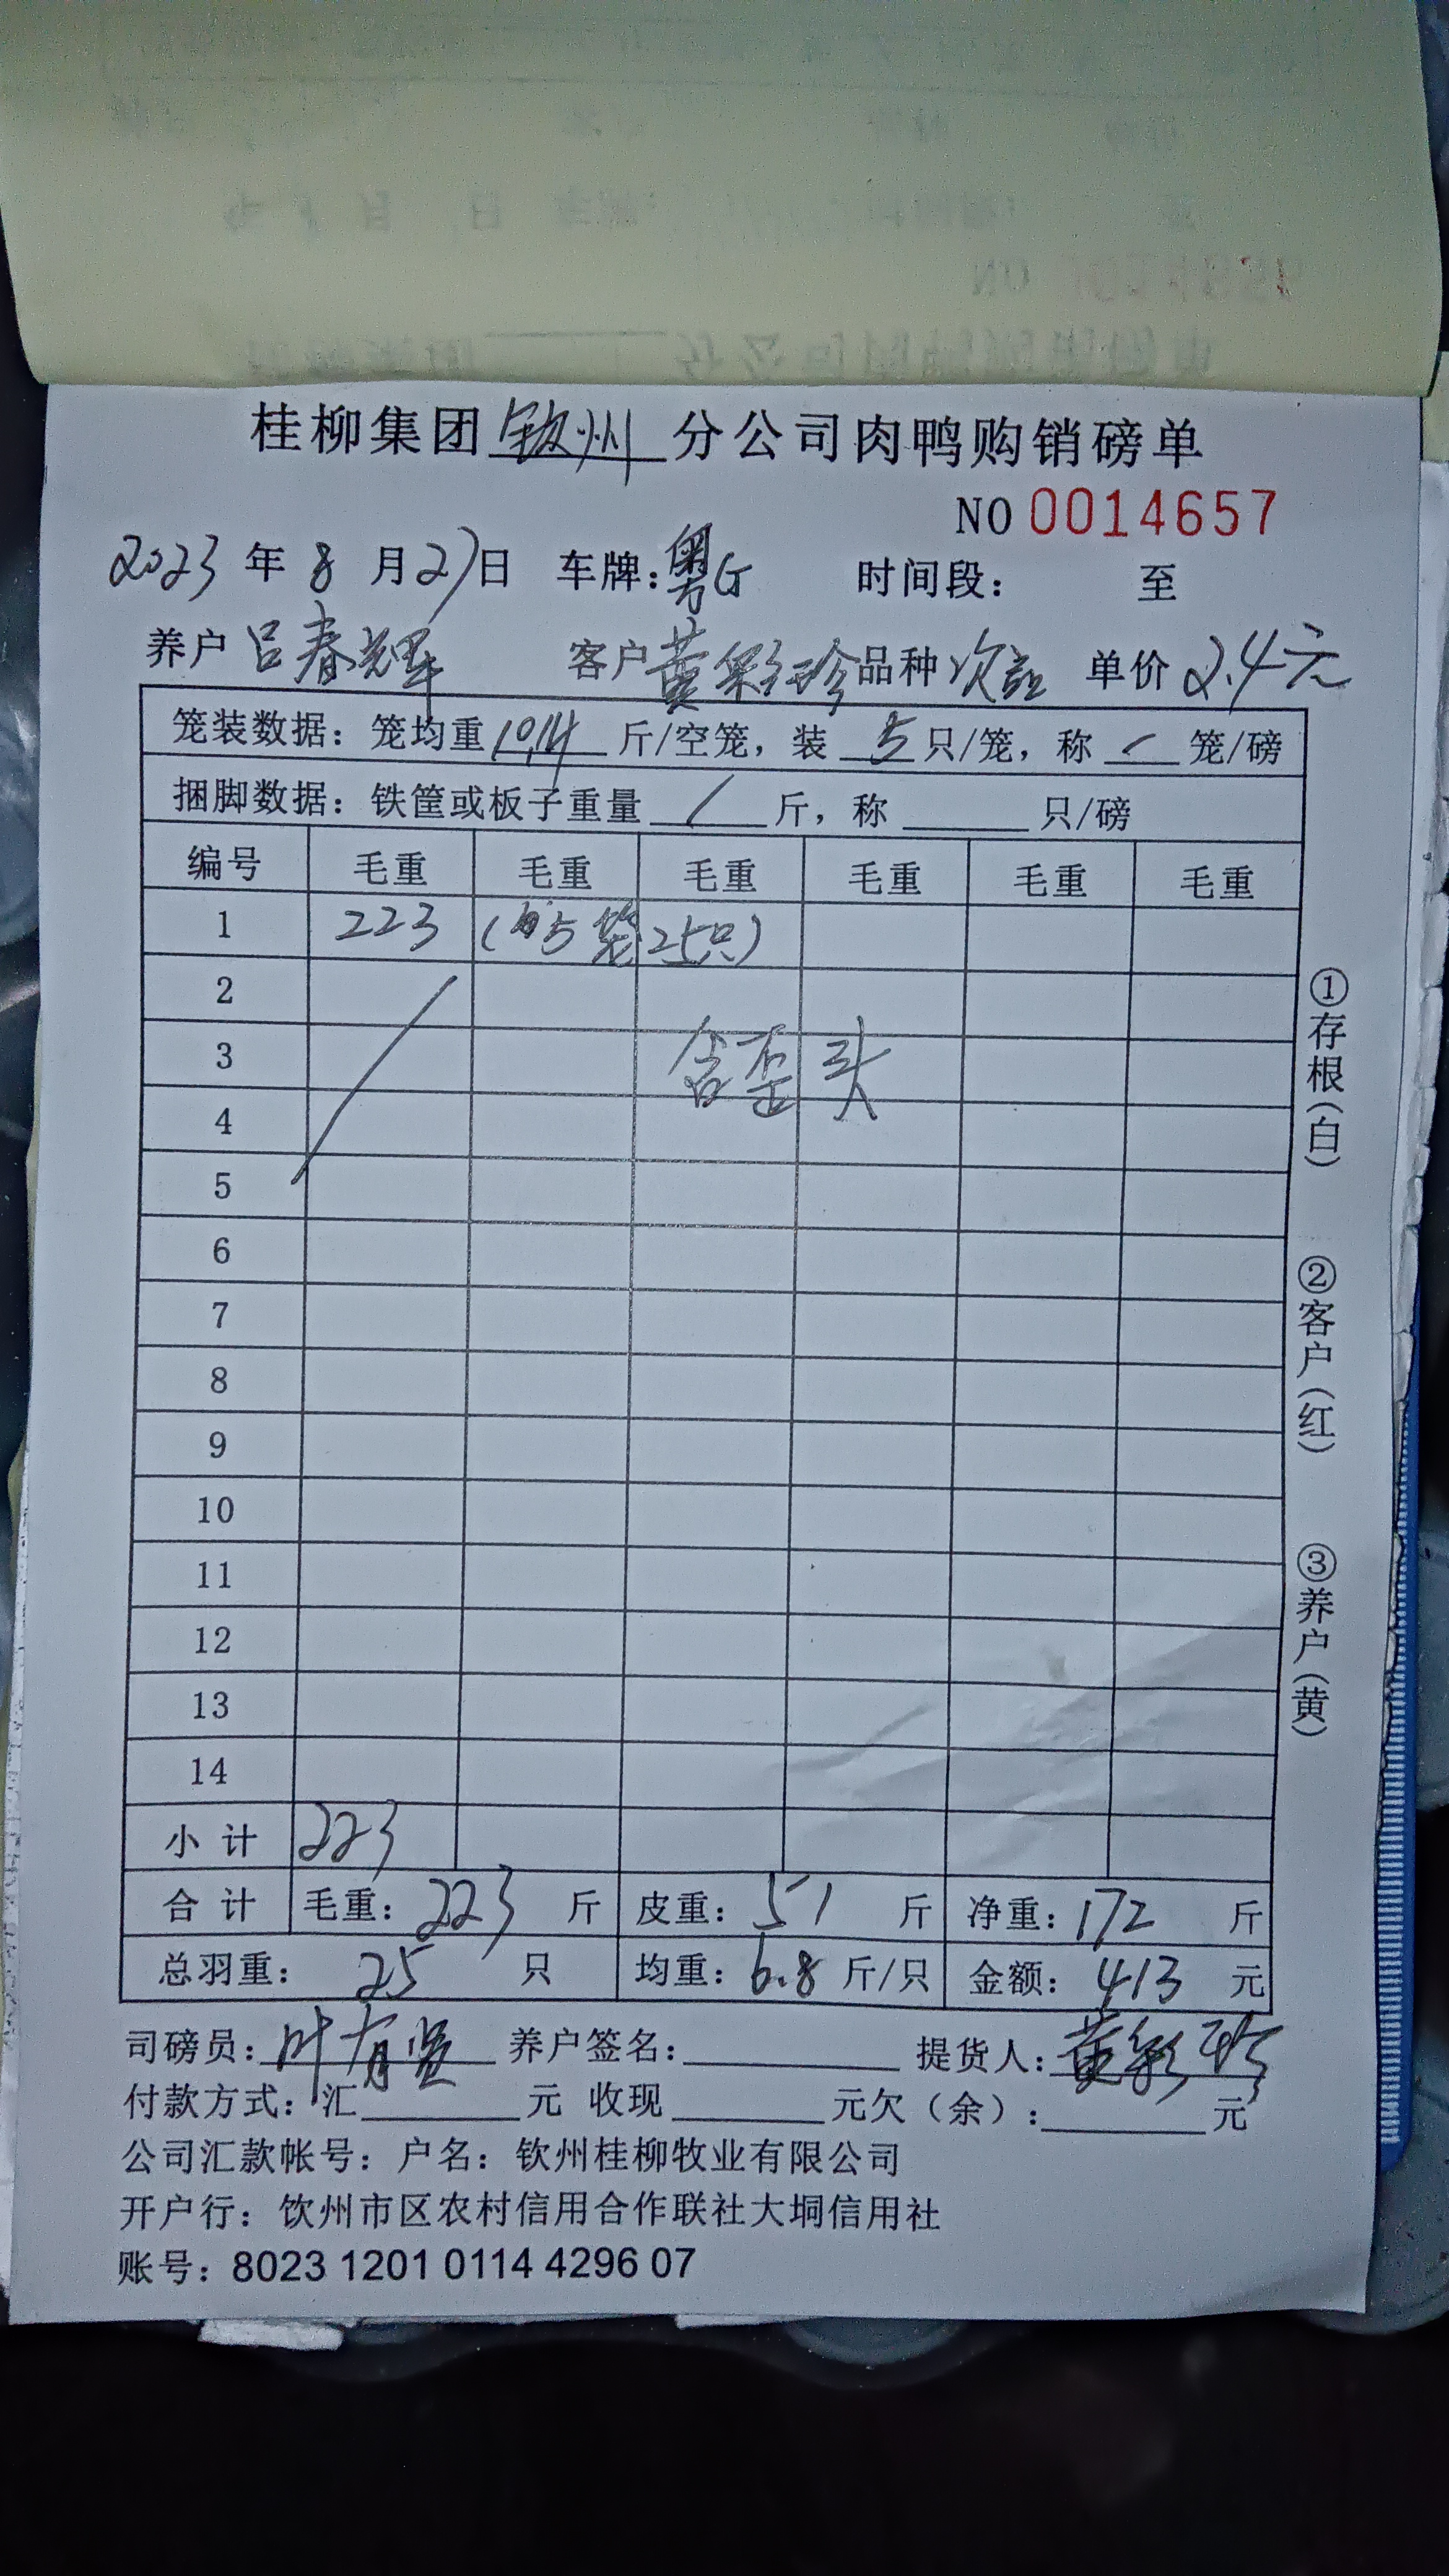 桂柳集团钦州分公司肉鸭购销磅单
NO 0014657
2023年8月27日 车牌:粤G 时间段: 至
养户 吕春辉 客户 黄彩珍 品种 次品 单价 2.4元
笼装数据：笼均重10.14斤/空笼，装5只/笼，称 笼/磅
捆脚数据：铁筐或板子重量 / 斤，称 只/磅
编号 毛重 毛重 毛重 毛重 毛重 毛重
1 223 (5笼25只)
2
3 含歪头
4
5
6
7
8
9
10
11
12
13
14
小计 223
合计 毛重：223斤 皮重：51斤 净重：172斤
总羽重：25只 均重：6.8斤/只 金额：413元
司磅员：叶有 养户签名： 提货人：黄彩珍
付款方式：汇 元 收现 元欠（余）： 元
公司汇款帐号：户名：钦州桂柳牧业有限公司
开户行：钦州市区农村信用合作联社大垌信用社
账号：8023 1201 0114 4296 07
①存根(白)
②客户(红)
③养户(黄)